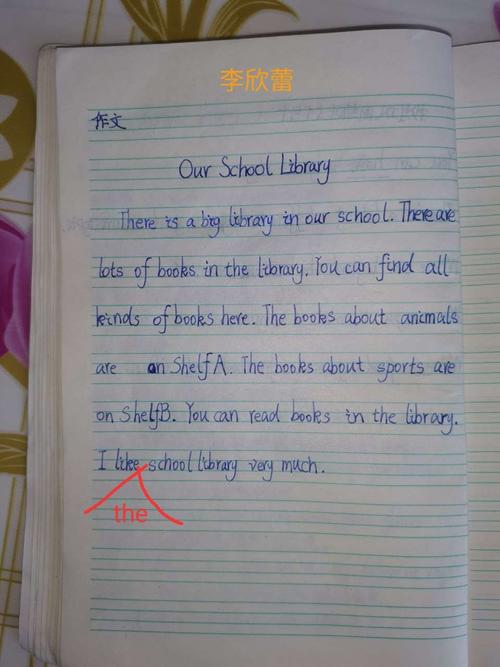 李欣蕾
作文
Our School Library
There is a big library in our school. There are
lots of books in the library. You can find all
kinds of books here. The books about animals
are on Shelf A. The books about sports are
on Shelf B. You can read books in the library.
I like school library very much.
the